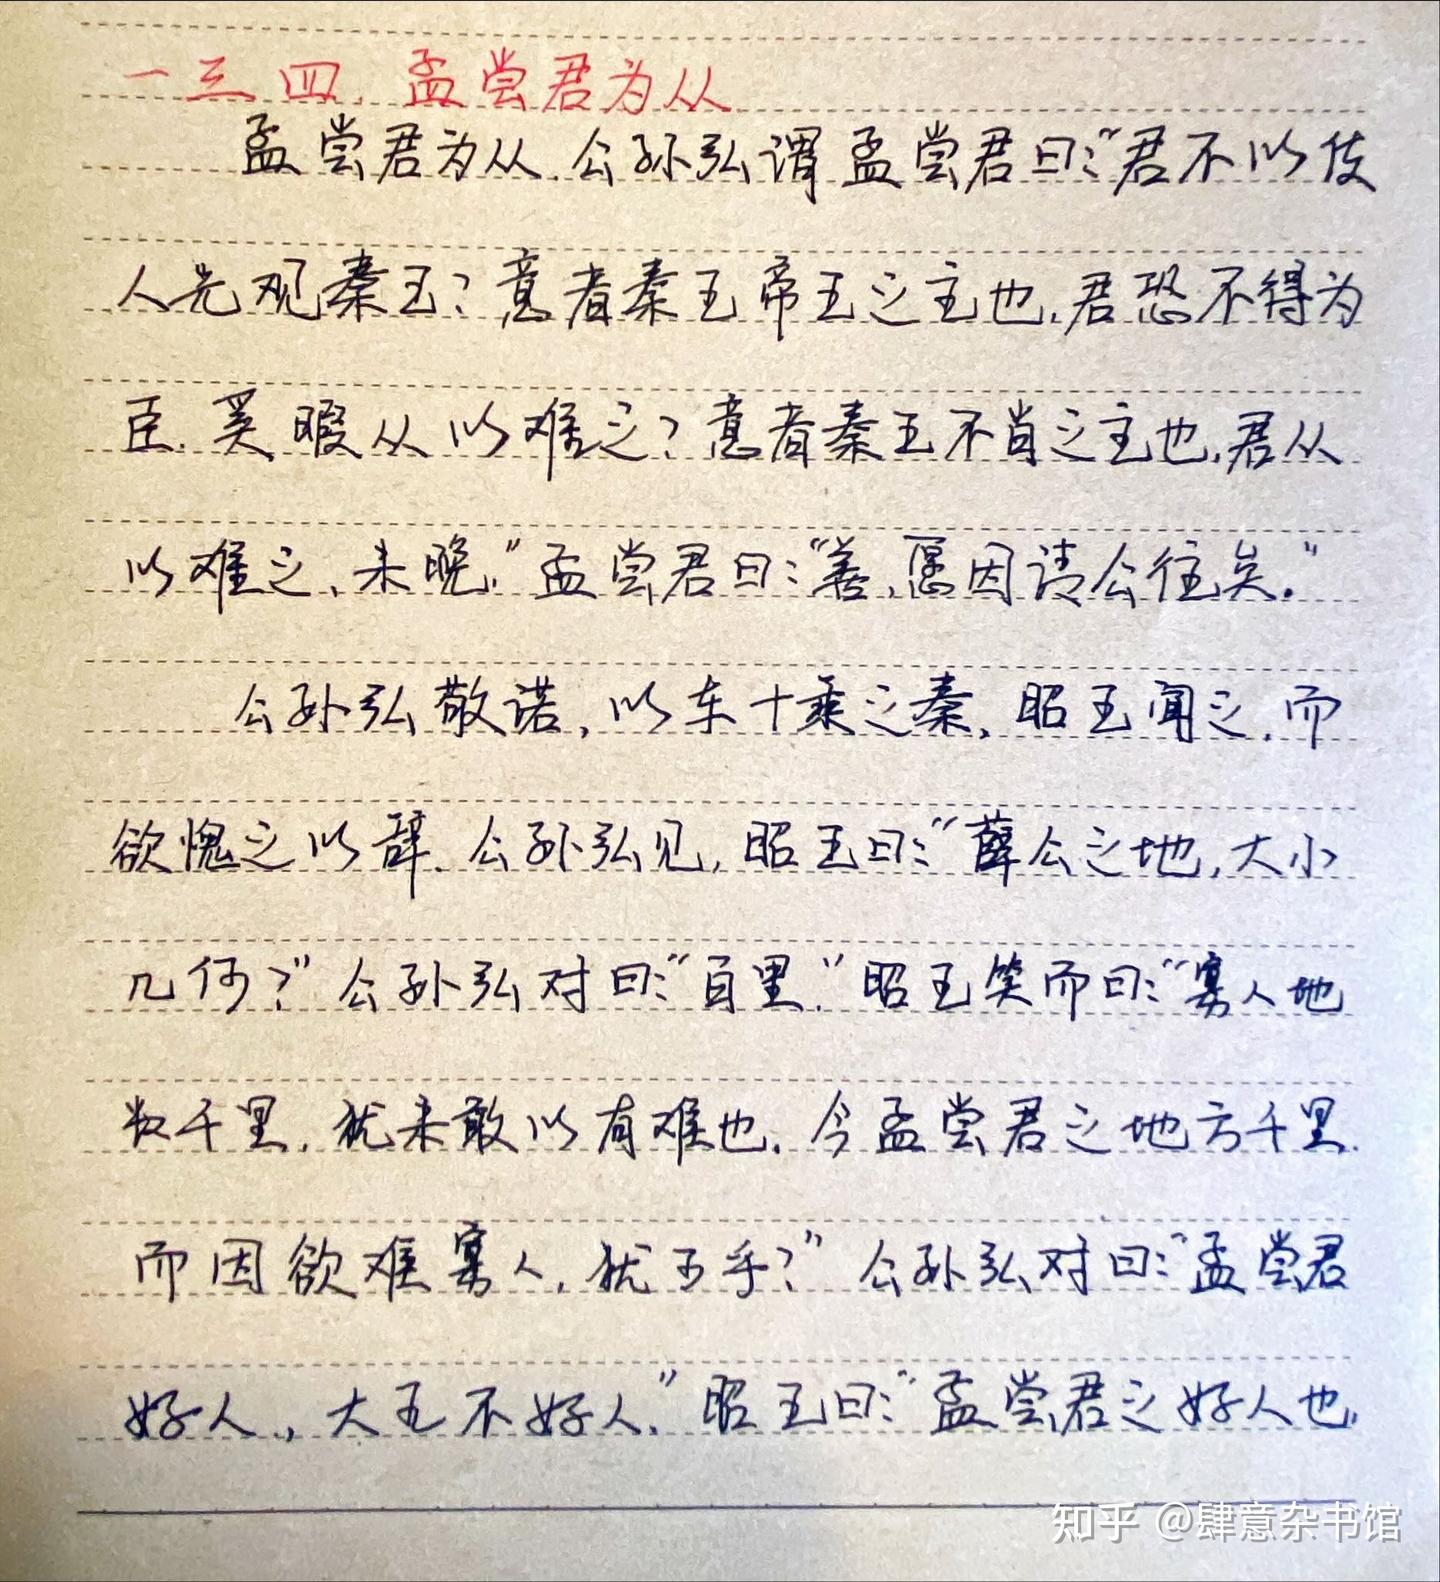 一三四、孟尝君为从
孟尝君为从，公孙弘谓孟尝君曰：“君不以使
人先观秦王？意者秦王帝王之主也，君恐不得为
臣，奚暇从以难之？意者秦王不肖之主也，君从
以难之，未晚。”孟尝君曰：“善，愿因请公往矣。”
公孙弘敬诺，以车十乘之秦，昭王闻之，而
欲愧之以辞。公孙弘见，昭王曰：“薛公之地，大小
几何？”公孙弘对曰：“百里。”昭王笑而曰：“寡人地
数千里，犹未敢以有难也。今孟尝君之地方千里，
而因欲难寡人，犹可乎？”公孙弘对曰：“孟尝君
好人，大王不好人。”昭王曰：“孟尝君之好人也，
知乎 @肆意杂书馆